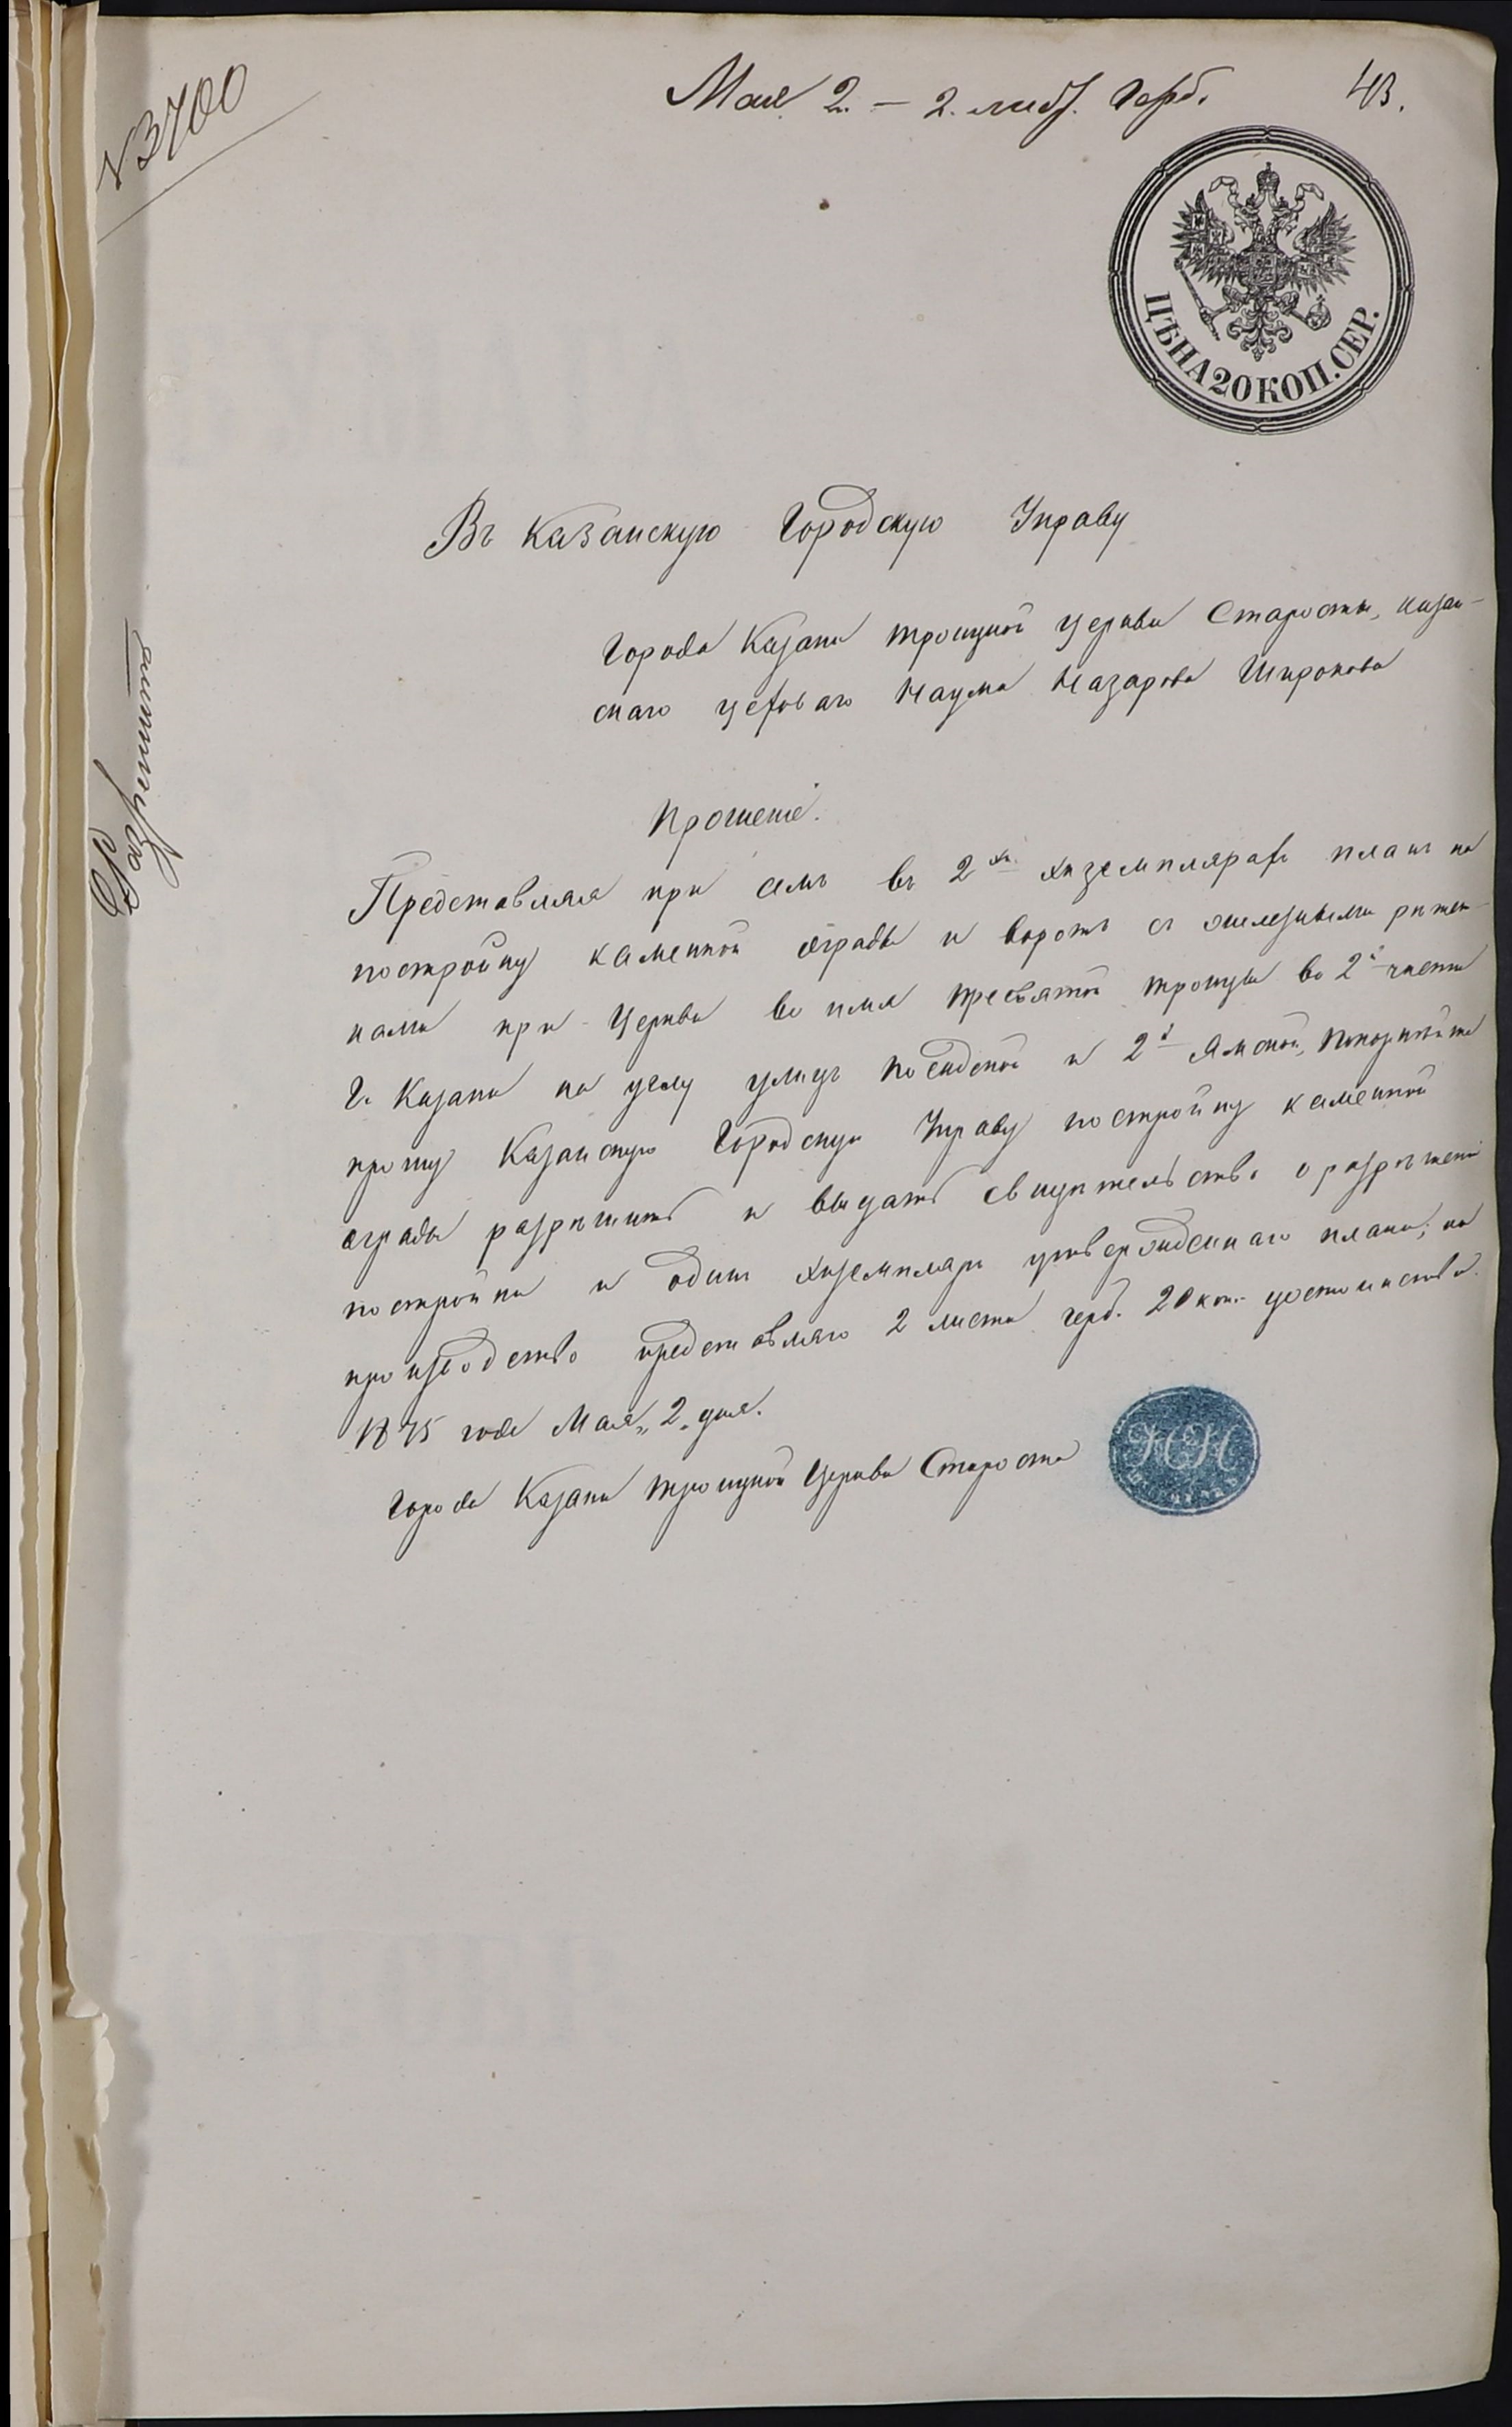 № 3700
Мая 2. — 2. лист. герб.
43.
ЦѢНА 20 КОП. СЕР.
Въ Казанскую Городскую Управу
Города Казани Троицкой церкви Старосты, казан-
скаго цеховаго Наума Назарова Широкова
Прошеніе.
Разрешить
Представляя при семъ въ 2хъ экземплярахъ планъ на
постройку каменной ограды и воротъ съ желѣзными рѣшет-
ками при Церкви во имя Пресвятой Троицы во 2й части
г. Казани на углу улицъ Посадской и 2й Ямской, Покорнѣйше
прошу Казанскую Городскую Управу постройку каменной
ограды разрѣшить и выдать свидѣтельство о разрѣшеніи
постройки и одинъ экземпляръ утвержденнаго плана; на
производство представляю 2 листа герб. 20 коп. достоинства.
1875 года Мая „2„ дня.
Города Казани Троицкой Церкви Староста